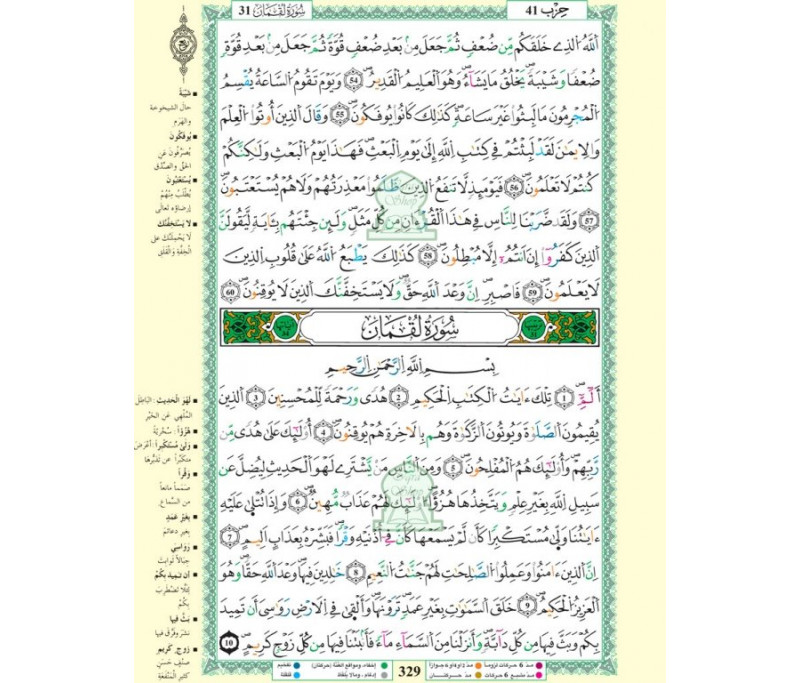 حِزْب 41
سُورَةُ لُقْمَانَ 31
اَللَّهُ الذِے خَلَقَكُم مِّن ضُعْفٖ ثُمَّ جَعَلَ مِنۢ بَعْدِ ضُعْفٖ قُوَّةٗ ثُمَّ جَعَلَ مِنۢ بَعْدِ قُوَّةٖ
ضُعْفاٗ وَشَيْبَةٗ يَخْلُقُ مَا يَشَآءُ وَهُوَ اَلْعَلِيمُ اُلْقَدِيرُ 54 وَيَوْمَ تَقُومُ اُلسَّاعَةُ يُقْسِمُ
اُلْمُجْرِمُونَ مَا لَبِثُواْ غَيْرَ سَاعَةٖ كَذَٰلِكَ كَانُواْ يُوفَكُونَ 55 وَقَالَ اَلذِينَ أُوتُواْ اُلْعِلْمَ
وَالِايمَٰنَ لَقَدْ لَبِثْتُمْ فِے كِتَٰبِ اِللَّهِ إِلَىٰ يَوْمِ اِلْبَعْثِ فَهَٰذَا يَوْمُ اُلْبَعْثِ وَلَٰكِنَّكُمْ
كُنتُمْ لَا تَعْلَمُونَ 56 فَيَوْمَئِذٖ لَّا تَنفَعُ اُلذِينَ ظَلَمُواْ مَعْذِرَتُهُمْ وَلَا هُمْ يُسْتَعْتَبُونَ
57 وَلَقَدْ ضَرَبْنَا لِلنَّاسِ فِے هَٰذَا اَلْقُرْءَانِ مِن كُلِّ مَثَلٖ وَلَئِن جِئْتَهُم بِـَٔايَةٖ لَّيَقُولَنَّ
اَلذِينَ كَفَرُوٓاْ إِنَ اَنتُمُۥٓ إِلَّا مُبْطِلُونَ 58 كَذَٰلِكَ يَطْبَعُ اُللَّهُ عَلَىٰ قُلُوبِ اِلذِينَ
لَا يَعْلَمُونَ 59 فَاصْبِرِ اِنَّ وَعْدَ اَللَّهِ حَقّٞ وَلَا يَسْتَخِفَّنَّكَ اَلذِينَ لَا يُوقِنُونَ 60
سُورَةُ لُقْمَانَ
بِسْمِ اِللَّهِ اِلرَّحْمَٰنِ اِلرَّحِيمِ
أَلَٓمِّٓ 1 تِلْكَ ءَايَٰتُ اُلْكِتَٰبِ اِلْحَكِيمِ 2 هُدىٗ وَرَحْمَةٗ لِّلْمُحْسِنِينَ 3 اَلذِينَ
يُقِيمُونَ اَلصَّلَوٰةَ وَيُوتُونَ اَلزَّكَوٰةَ وَهُم بِالَاخِرَةِ هُمْ يُوقِنُونَ 4 أُوْلَٰٓئِكَ عَلَىٰ هُدىٗ مِّن
رَّبِّهِمْ وَأُوْلَٰٓئِكَ هُمُ اُلْمُفْلِحُونَ 5 وَمِنَ اَلنَّاسِ مَنْ يَّشْتَرِے لَهْوَ اَلْحَدِيثِ لِيُضِلَّ عَن
سَبِيلِ اِللَّهِ بِغَيْرِ عِلْمٖ وَيَتَّخِذُهَا هُزُؤاً اوْلَٰٓئِكَ لَهُمْ عَذَابٞ مُّهِينٞ 6 وَإِذَا تُتْلَىٰ عَلَيْهِ
ءَايَٰتُنَا وَلَّىٰ مُسْتَكْبِراٗ كَأَن لَّمْ يَسْمَعْهَا كَأَنَّ فِےٓ أُذْنَيْهِ وَقْراٗ فَبَشِّرْهُ بِعَذَابٍ اَلِيمٍ 7
اِنَّ اَلذِينَ ءَامَنُواْ وَعَمِلُواْ اُلصَّٰلِحَٰتِ لَهُمْ جَنَّٰتُ اُلنَّعِيمِ 8 خَٰلِدِينَ فِيهَا وَعْدَ اَللَّهِ حَقّاٗ وَهُوَ
اَلْعَزِيزُ اُلْحَكِيمُ 9 خَلَقَ اَلسَّمَٰوَٰتِ بِغَيْرِ عَمَدٖ تَرَوْنَهَا وَأَلْقَىٰ فِے اِلَارْضِ رَوَٰسِيَ أَن تَمِيدَ
بِكُمْ وَبَثَّ فِيهَا مِن كُلِّ دَآبَّةٖ وَأَنزَلْنَا مِنَ اَلسَّمَآءِ مَآءٗ فَأَنۢبَتْنَا فِيهَا مِن كُلِّ زَوْجٖ كَرِيمٍ 10
شَيْبَةً
حال الشيخوخة
والهرم
يُوفَكُونَ
يُصْرَفُونَ عن
الحق والصدق
يُسْتَعْتَبُونَ
يُطْلَبُ مِنْهُمْ
إرضاؤه تعالى
لا يَسْتَخِفَّنَّكَ
لا يَحْمِلَنَّكَ على
الخِفَّةِ والقَلَقِ
لَهْوَ الْحَدِيثِ: الباطل
المُلْهِي عن الخير
هُزُؤاً: سُخْرِيَّة
وَلَّى مُسْتَكْبِراً: أعْرَض
متكبّراً عن تدبُّرها
وَقْراً
صَمَماً مانعاً
من السَّماع
بِغَيْرِ عَمَدٍ
بغير دعائم
رَوَاسِيَ
جبالاً ثوابت
أن تَمِيدَ بِكُمْ
لئلا تَضْطَرِبَ
بِكُمْ
بَثَّ فيها
نشر وفرّق فيها
زوجٍ كريمٍ
صنف حسن
كثير المنفعة
329
مدّ 6 حركات لزوماً
مدّ 2 أو 4 أو 6 جوازاً
مدّ مشبع 6 حركات
مدّ حركتان
إخفاء، ومواقع الغنّة (حركتان)
إدغام، وما لا يُلفظ
تفخيم
قلقلة